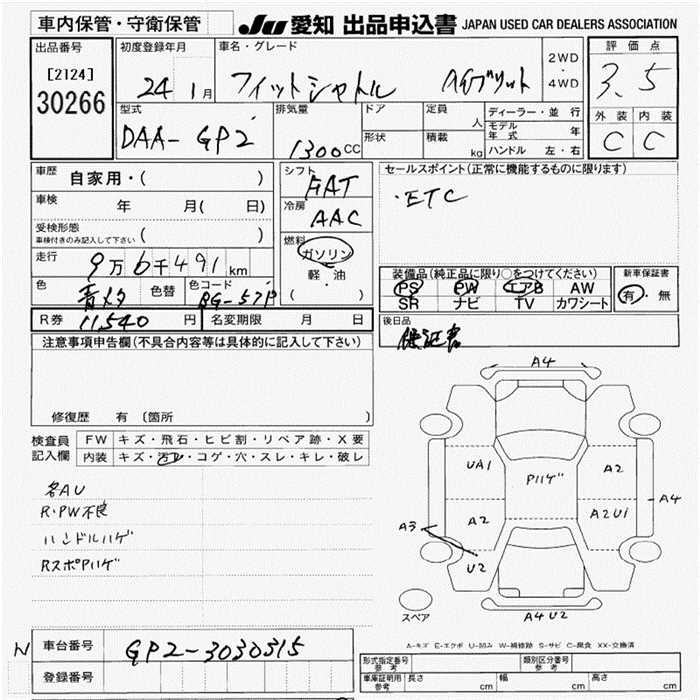 車内保管・守衛保管
JU 愛知 出品申込書 JAPAN USED CAR DEALERS ASSOCIATION
出品番号
[2124]
30266
初度登録年月
24 1月
車名・グレード
フィットシャトル ハイブリット
2WD・4WD
評価点
3.5
外装 内装
C C
型式
DAA-GP2
排気量
1300CC
ドア
形状
定員 人
積載 kg
ディーラー・並行
モデル年式 年
ハンドル 左・右
車歴 自家用・( )
車検 年 月( 日)
受検形態
車検付きのみ記入して下さい ( )
走行 9万6千491km
色 青メタ 色替 色コード BG-57P
シフト FAT
冷房 AAC
燃料
ガソリン
軽・油
( )
セールスポイント(正常に機能するものに限ります)
・ETC
装備品(純正品に限り○をつけてください)
PS PW エアB AW
SR ナビ TV カワシート
新車保証書
有・無
R券 11,540円 名変期限 月 日
後日品
保証書
注意事項申告欄(不具合内容等は具体的に記入して下さい)
修復歴 有 〔箇所
検査員記入欄
FW キズ・飛石・ヒビ割・リペア跡・X要
内装 キズ・汚レ・コゲ・穴・スレ・キレ・破レ
各AU
R・PW不良
ハンドルハゲ
RスポPハゲ
A4
UA1 Pハゲ A2
A4
A3 A2 A2U1
U2
スペア
A4U2
A-キズ E-エクボ U-凹み W-補修跡 S-サビ C-腐食 XX-交換済
N 車台番号 GP2-3030315
登録番号
形式指定番号 参考 類別区分番号 参考
車庫証明用 参考 長さ cm 幅 cm 高さ cm